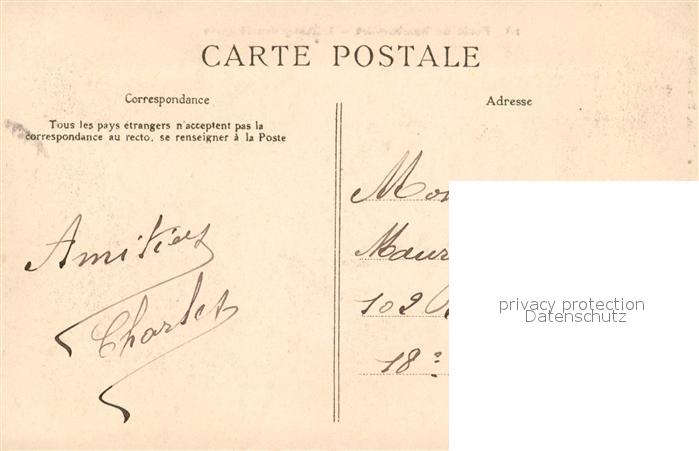 CARTE POSTALE
Correspondance
Tous les pays étrangers n'acceptent pas la
correspondance au recto, se renseigner à la Poste
Amitiés
Charlet
Adresse
Mon
Maur
102
18e
privacy protection
Datenschutz